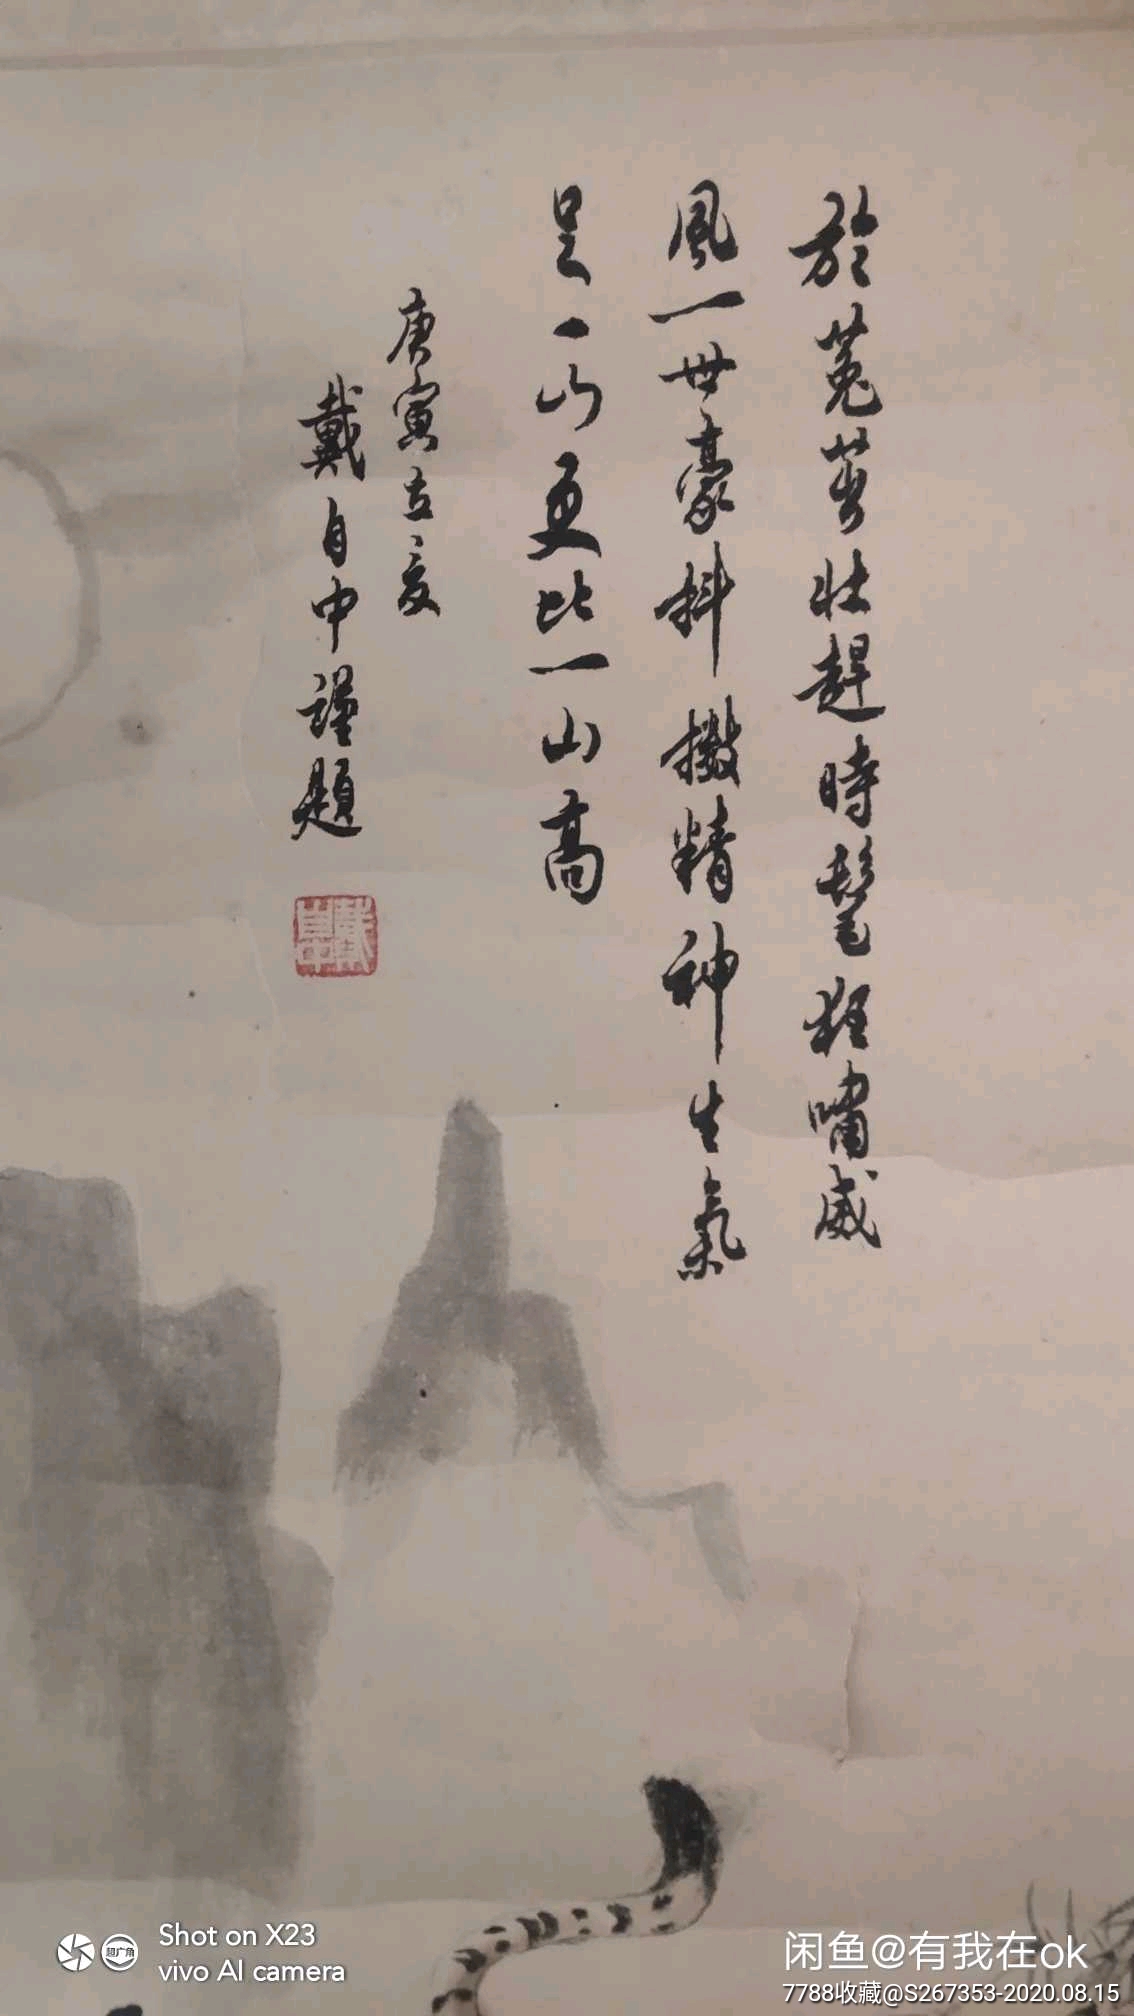 於菟茁壯趕時髦狂嘯威
風一世豪抖擻精神生氣
足一山更比一山高
庚寅立夏
戴自中謹題
Shot on X23
vivo AI camera
闲鱼@有我在ok
7788收藏@S267353-2020.08.15